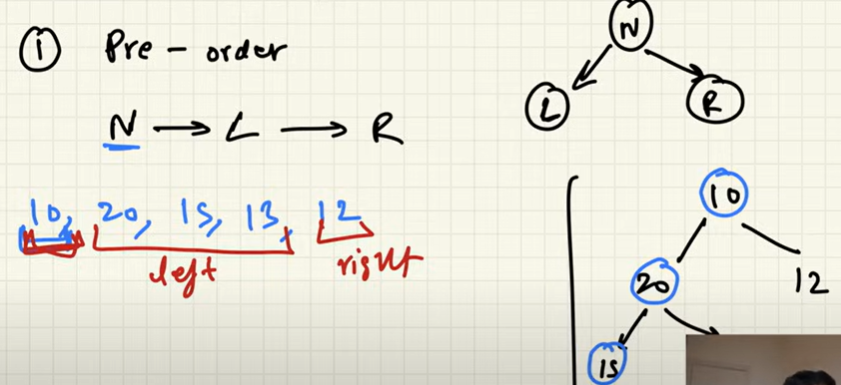 1 Pre - order
N → L → R
10, 20, 15, 13, 12
left right
N
L R
10
20 12
15